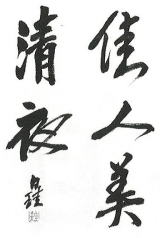 佳人美
清夜